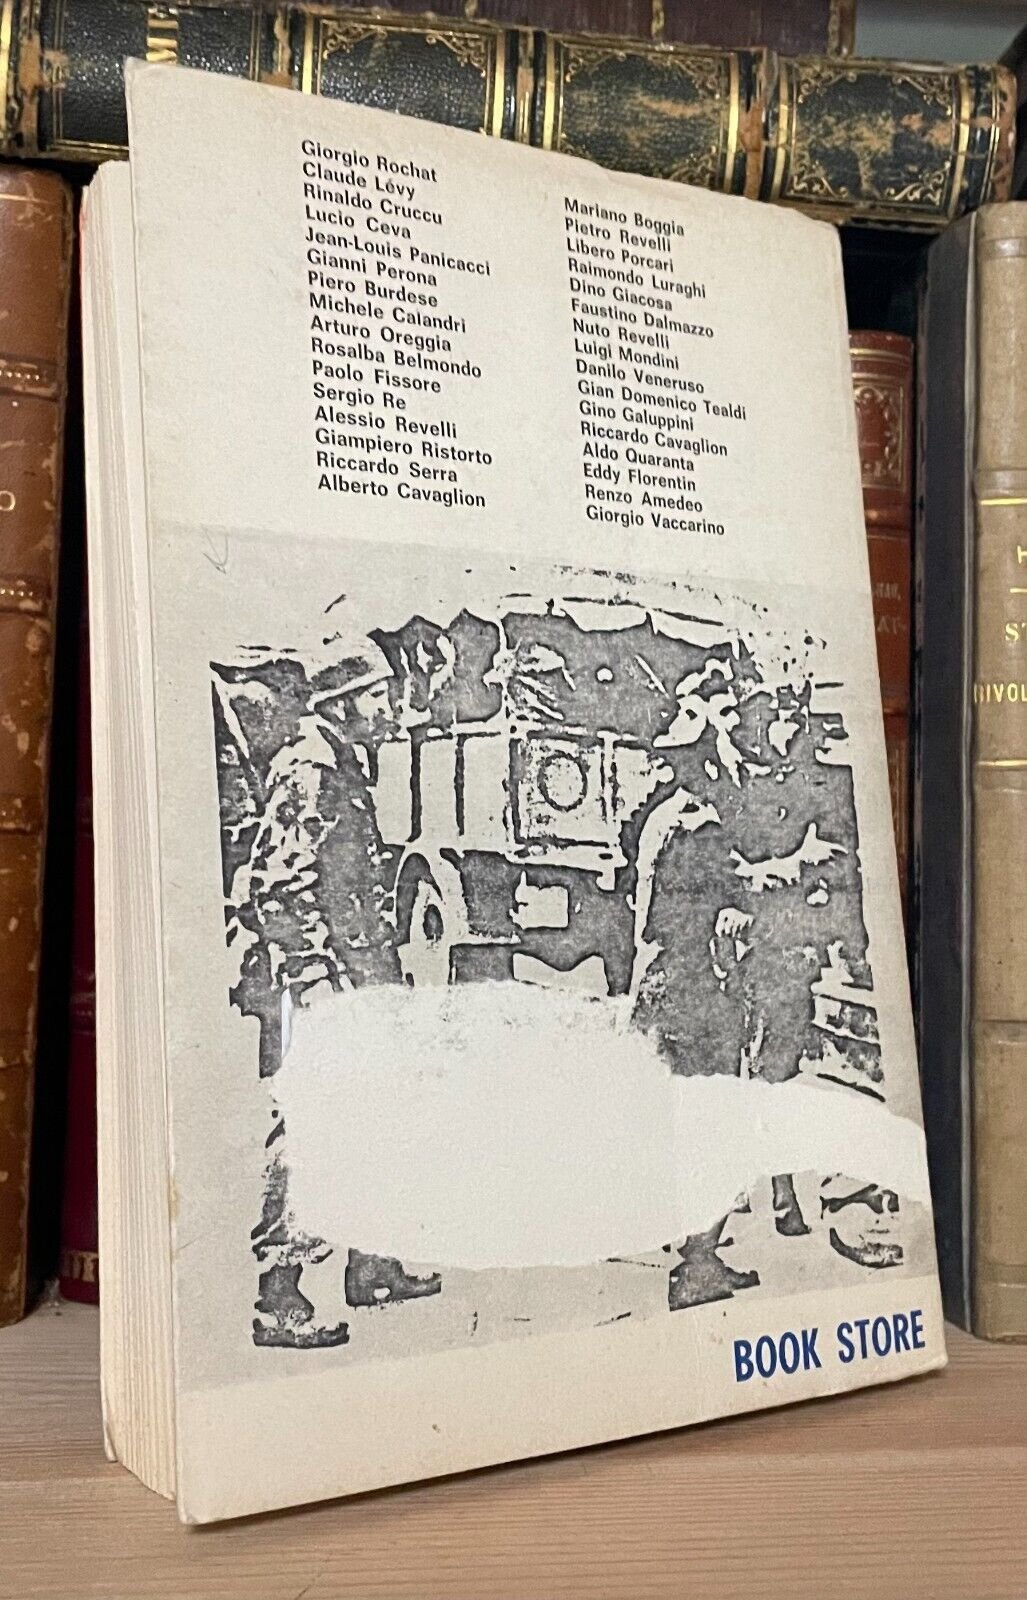 Giorgio Rochat
Claude Lévy
Rinaldo Cruccu
Lucio Ceva
Jean-Louis Panicacci
Gianni Perona
Piero Burdese
Michele Calandri
Arturo Oreggia
Rosalba Belmondo
Paolo Fissore
Sergio Re
Alessio Revelli
Giampiero Ristorto
Riccardo Serra
Alberto Cavaglion
Mariano Boggia
Pietro Revelli
Libero Porcari
Raimondo Luraghi
Dino Giacosa
Faustino Dalmazzo
Nuto Revelli
Luigi Mondini
Danilo Veneruso
Gian Domenico Tealdi
Gino Galuppini
Riccardo Cavaglion
Aldo Quaranta
Eddy Florentin
Renzo Amedeo
Giorgio Vaccarino
BOOK STORE